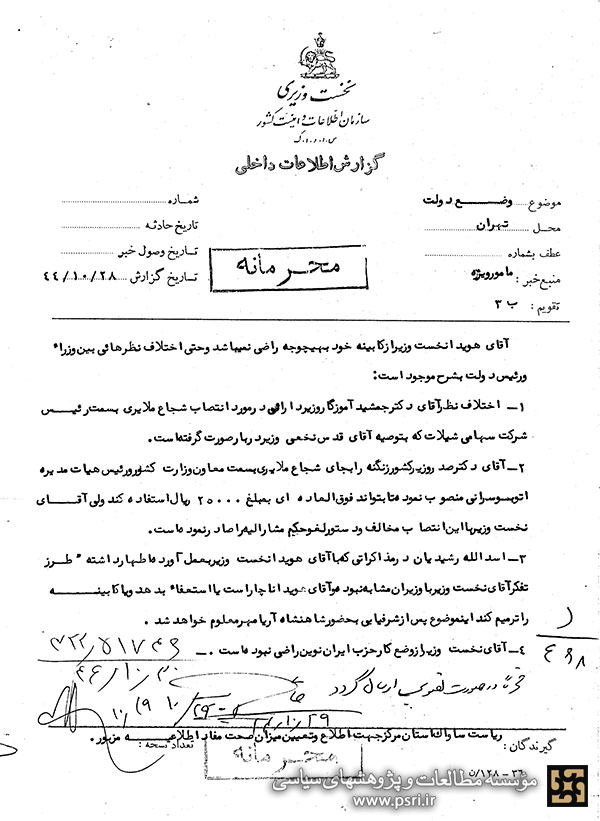 نخست وزیری
سازمان اطلاعات و امنیت کشور
س.ا.و.ا.ک
گزارش اطلاعات داخلی
موضوع وضع دولت
محل تهران
عطف بشماره
منبع خبر: مامور ویژه
تقویم: ب ۳
شماره
تاریخ حادثه
تاریخ وصول خبر
تاریخ گزارش ۴۴/۱۰/۲۸
محرمانه
آقای هویدا نخست وزیر از کابینه خود بهیچوجه راضی نمیباشد و حتی اختلاف نظرهائی بین وزراء
و رئیس دولت بشرح موجود است:
۱ـ اختلاف نظر آقای دکتر جمشید آموزگار وزیر دارائی در مورد انتصاب شجاع ملایری بسمت رئیس
شرکت سهامی شیلات که بتوصیه آقای قدس نخعی وزیر دربار صورت گرفته است.
۲ـ آقای دکتر صدر وزیر کشور زنگنه را بجای شجاع ملایری بسمت معاون وزارت کشور و رئیس هیات مدیره
اتوبوسرانی منصوب نموده تا بتواند فوق العاده ای بمبلغ ۲۵۰۰۰ ریال استفاده کند ولی آقای
نخست وزیر با این انتصاب مخالف و دستور لغو حکم مشارالیه را صادر نموده است.
۳ـ اسدالله رشیدیان در مذاکراتی که با آقای هویدا نخست وزیر بعمل آورده اظهار داشته "طرز
تفکر آقای نخست وزیر با وزیران مشابه نبوده و آقای هویدا ناچار است یا استعفاء بدهد و یا کابینه
را ترمیم کند این موضوع پس از شرفیابی بحضور شاهنشاه آریامهر معلوم خواهد شد.
۴ـ آقای نخست وزیر از وضع کار حزب ایران نوین راضی نبوده است.
۳۲۲/۵۱۷۴۶
در صورت تصویب ارسال گردد
ریاست ساواک استان مرکز جهت اطلاع و تعیین میزان صحت مفاد اطلاعیه مزبور.
گیرندگان:
تعداد نسخه:
محرمانه
۳۶ - ۱۲۸/ن
مؤسسه مطالعات و پژوهشهای سیاسی
www.psri.ir